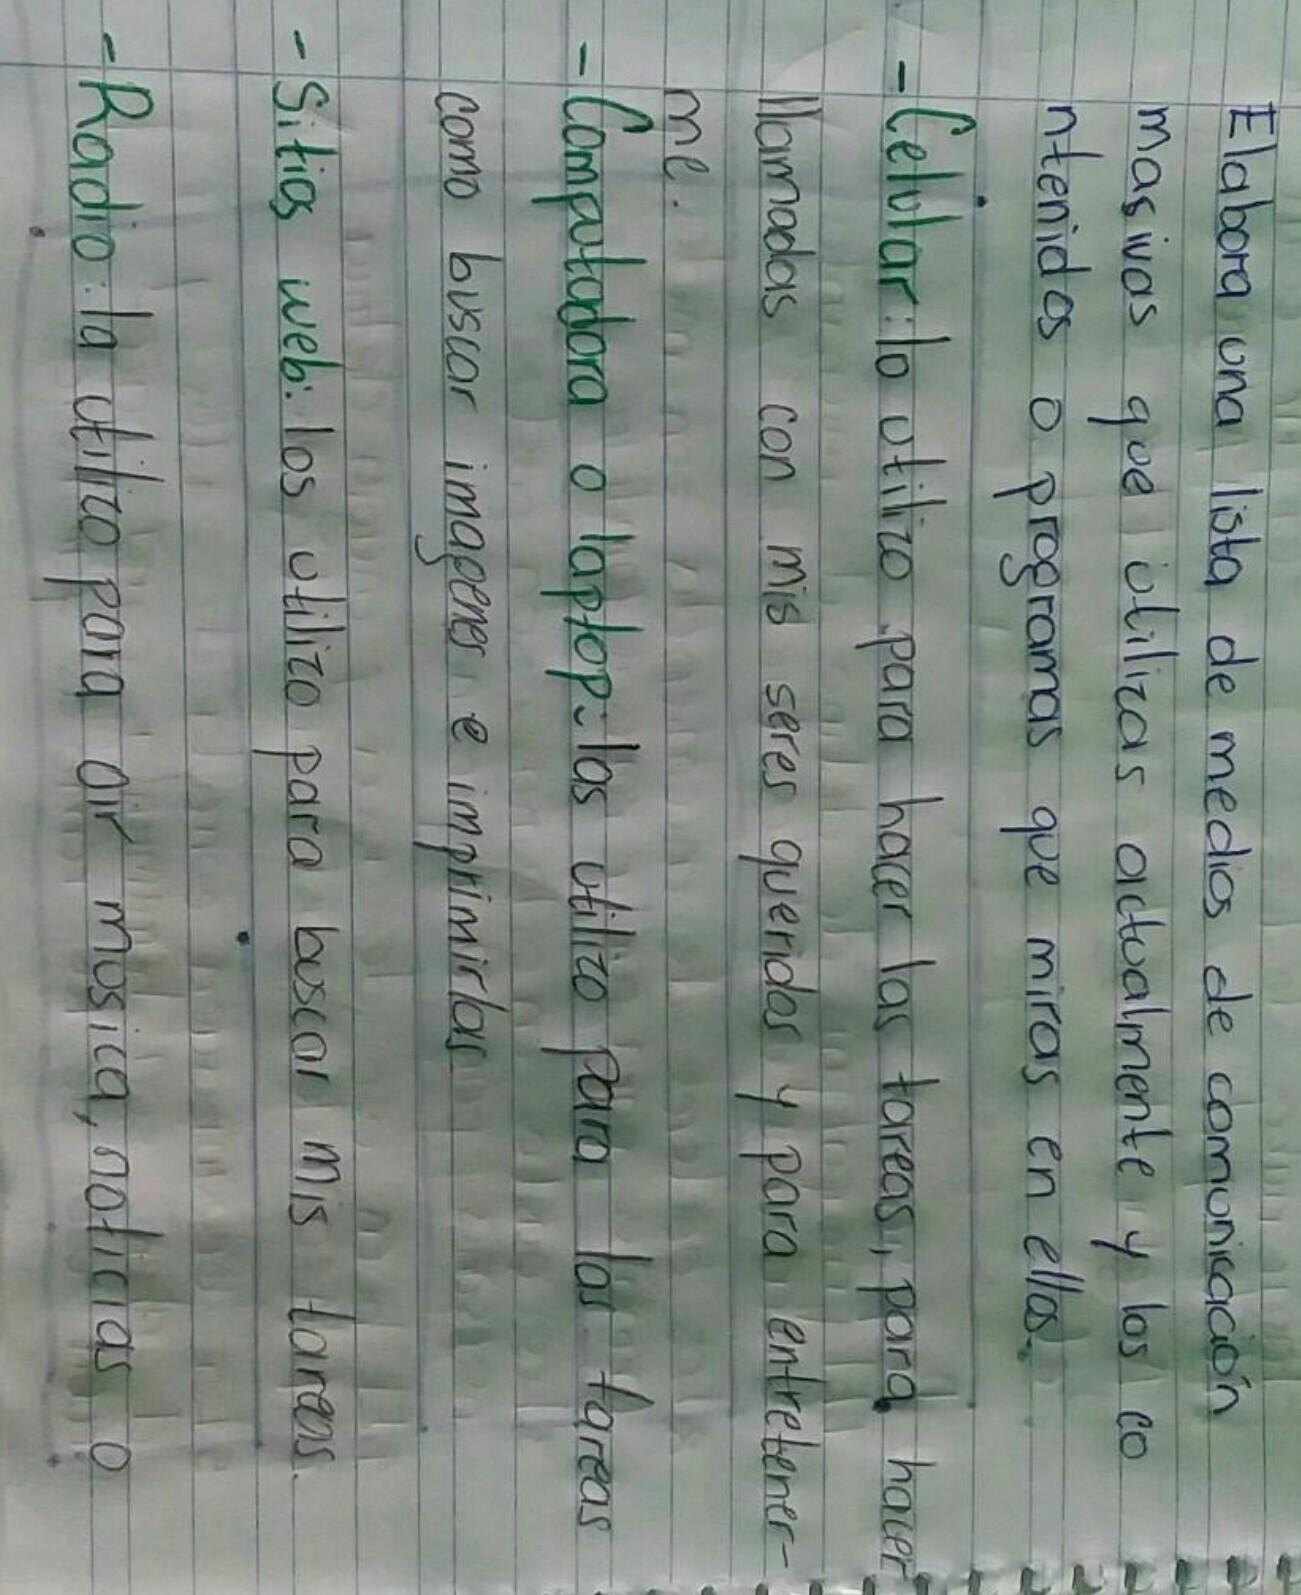 Elabora una lista de medios de comunicación
masivos que utilizas actualmente y los co
ntenidos o programas que miras en ellos.
- Celular: lo utilizo para hacer las tareas, para hacer
llamadas con mis seres queridos y para entretener-
me.
- Computadora o laptop: las utilizo para las tareas
como buscar imagenes e imprimirlas
- Sitios web: los utilizo para buscar mis tareas.
- Radio: la utilizo para oir musica, noticias o